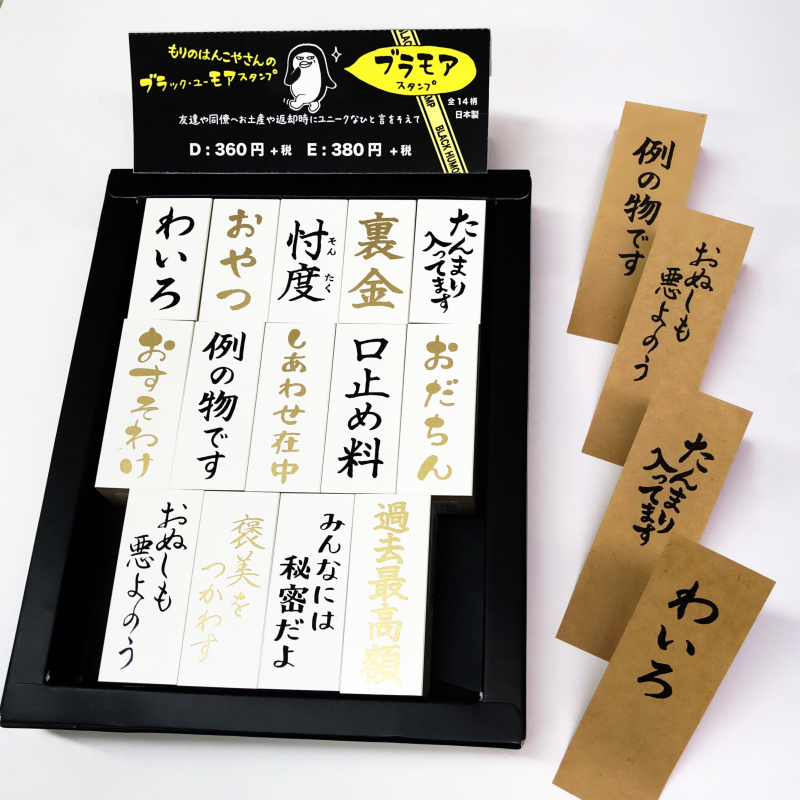 もりのはんこやさんの
ブラック・ユーモアスタンプ
ブラモア
スタンプ
全14柄
日本製
BLACK HUMO
友達や同僚へお土産や返却時にユニークなひと言をそえて
D:360円+税 E:380円+税
わいろ
おやつ
忖度
そん
たく
裏金
たんまり
入ってます
おすそわけ
例の物です
しあわせ在中
口止め料
おだちん
おぬしも
悪よのう
褒美を
つかわす
みんなには
秘密だよ
過去最高額
例の物です
おぬしも
悪よのう
たんまり
入ってます
わいろ